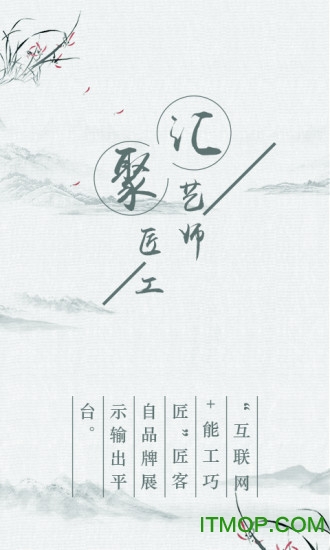 汇艺师
聚匠工
“互联网
+能工巧
匠”匠客
自品牌展
示输出平
台。
ITMOP.COM